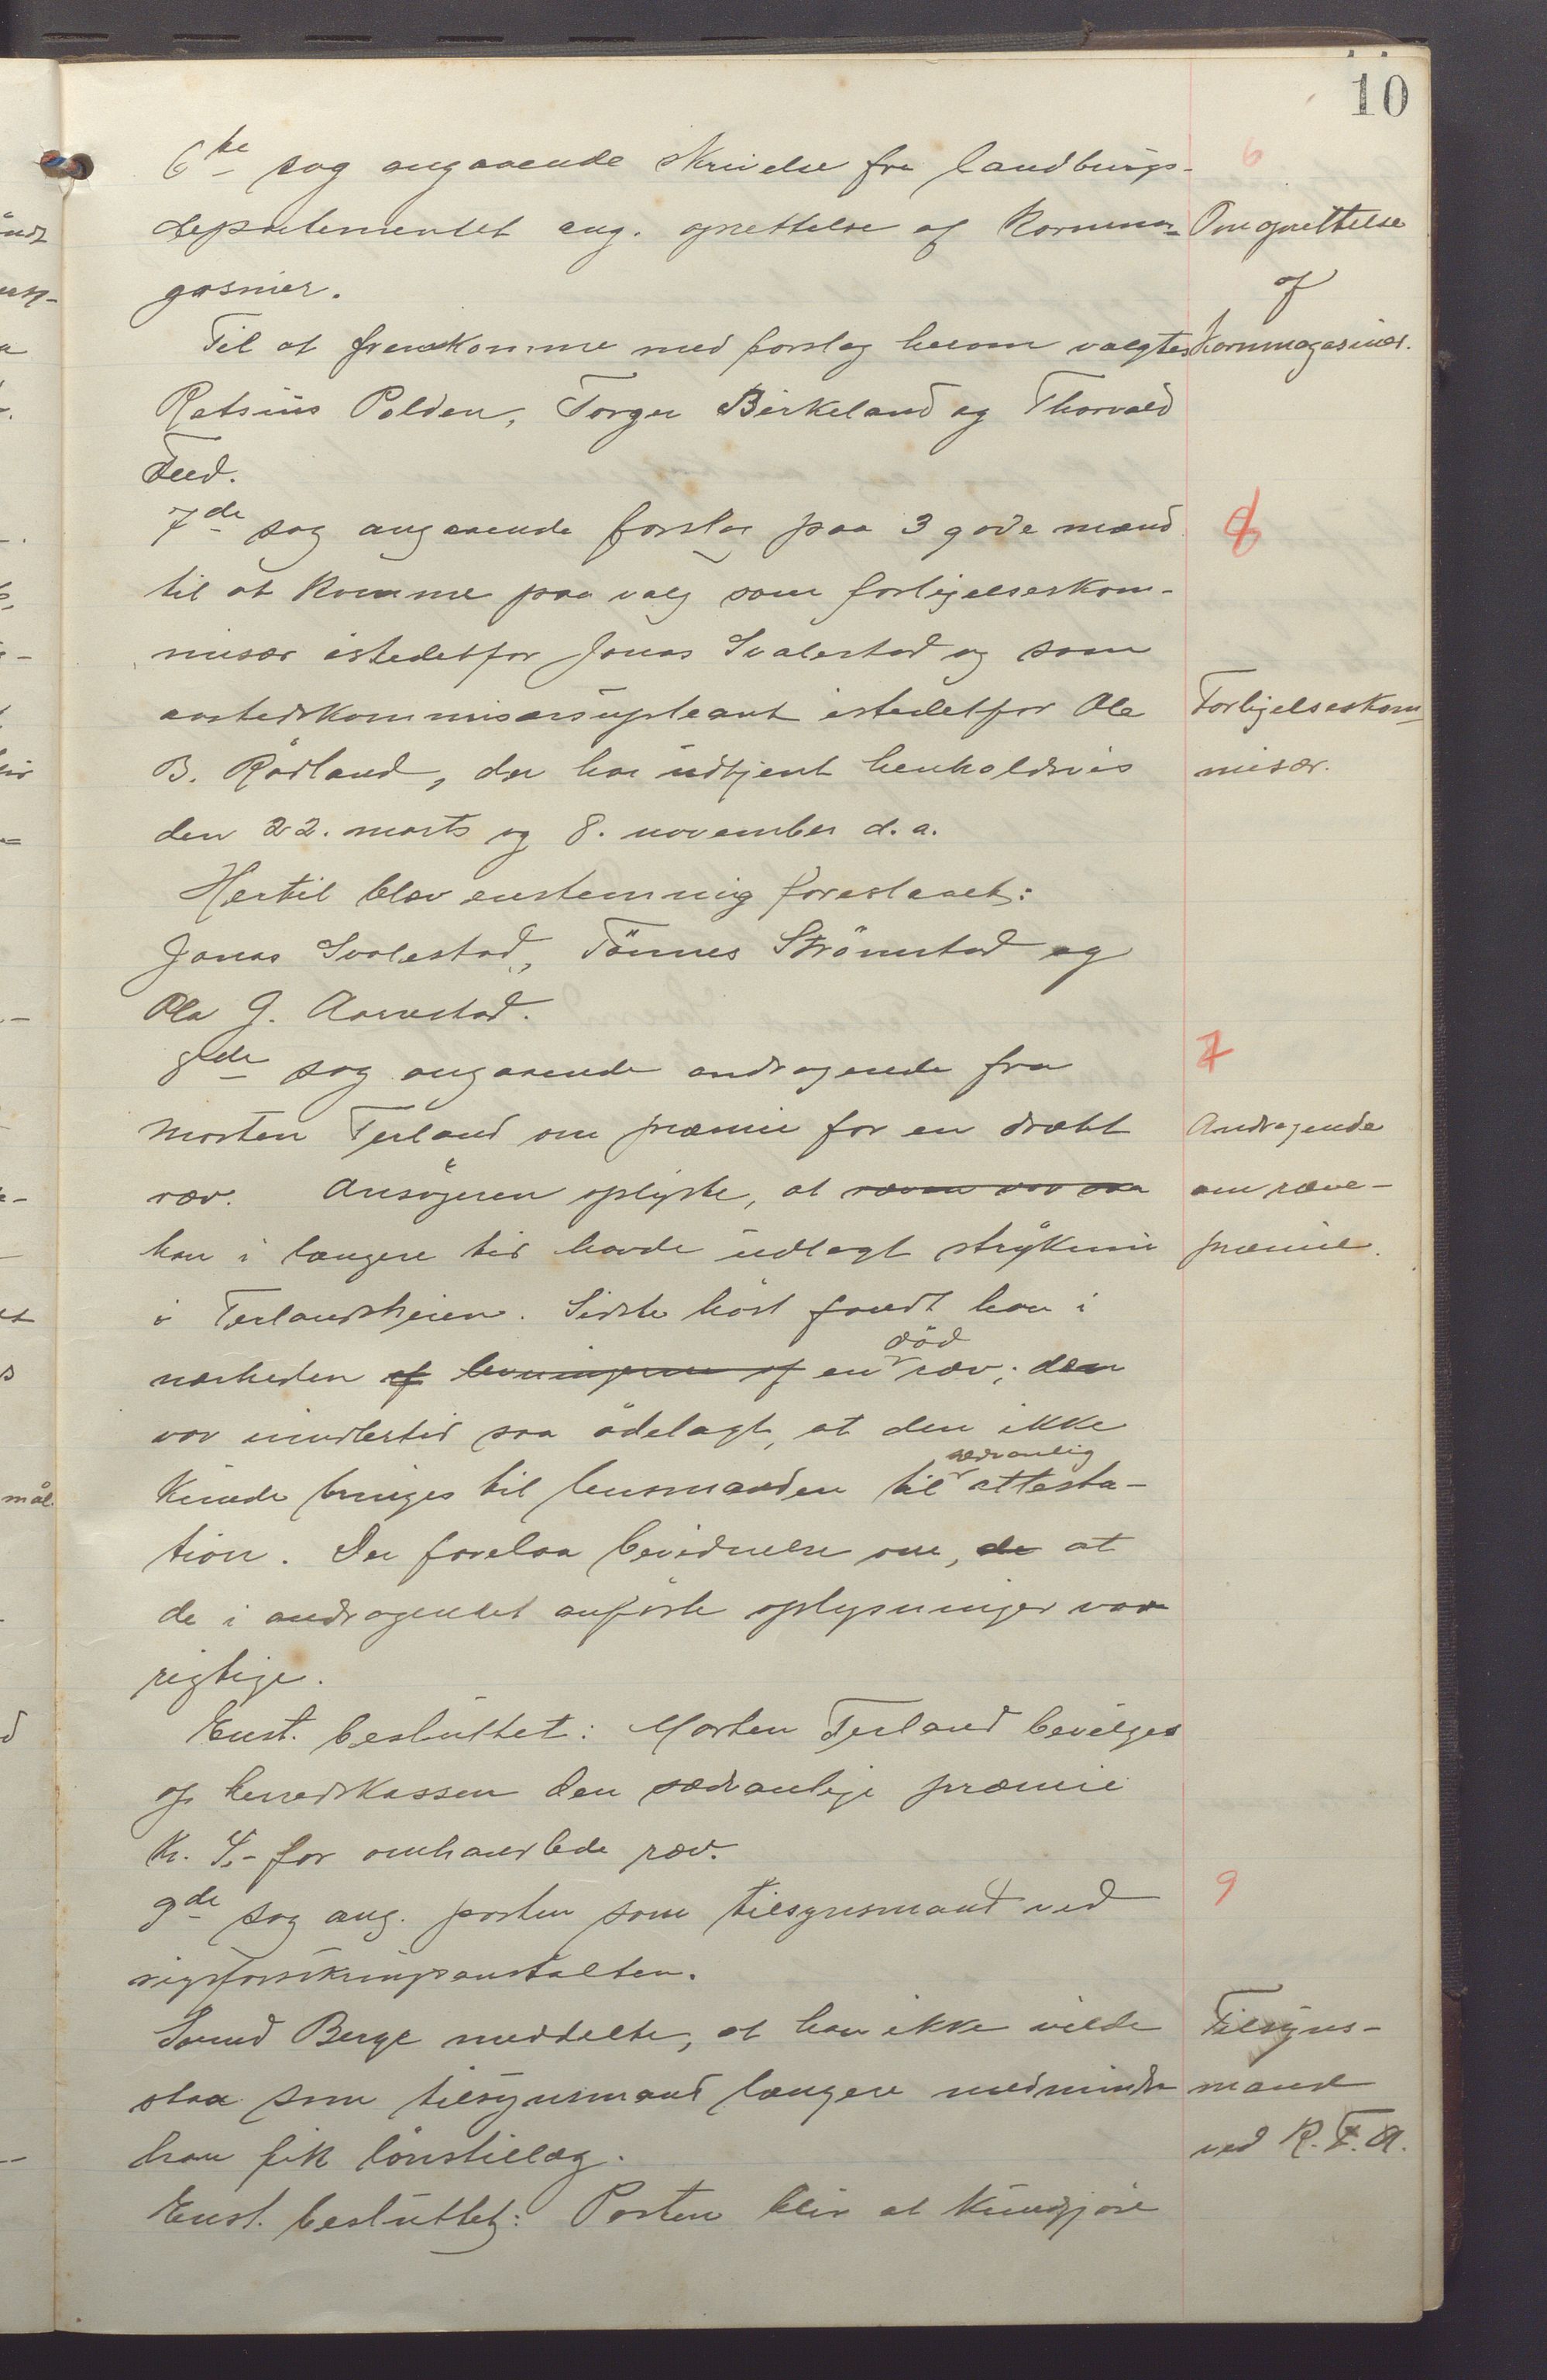 10
6te sag angaaende skrivelse fra landbrugs-
departementet ang. oprettelse af kornma-
gasiner.
6
Om oprettelse
af
kornmagasiner.
Til at fremkomme med forslag herom valgtes
Rasmus Polden, Torger Birkeland og Thorvald
Tued.
7de sag angaaende forslag paa 3 gode mænd
til at komme paa valg som forligelseskom-
misær istedetfor Jonas Svalestad og som
aastedskommisærsupleant istedetfor Ole
B. Rödland, der har udtjent henholdsvis
den 22. marts og 8. november d. a.
8
Forligelseskom-
misær.
Hertil blev enstemmig foreslaaet:
Jonas Svalestad, Tönnes Strömstad og
Ola G. Aarrestad.
8de sag angaaende andragende fra
Morten Terland om præmie for en dræbt
ræv. Ansögeren oplyste, at ræven var saa
han i længere tid havde udlagt stryknin
i Terlandsheien. Sidste höst fandt han i
nærheden af levningerne af en död ræv; den
var imidlertid saa ödelagt, at den ikke
kunde bringes til lensmanden til sedvanlig attesta-
tion. Der forelaa bevidnelse om, de at
de i andragendet anförte oplysninger var
rigtige.
7
Andragende
om ræve-
præmie.
Enst. besluttet: Morten Terland bevilges
af herredskassen den sædvanlige præmie
kr. 4,- for omhandlede ræv.
9de sag ang. posten som tilsynsmand ved
rigsforsikringsanstalten.
9
Svend Berge meddelte, at han ikke vilde
staa som tilsynsmand længere medmindre
han fik lönstillæg.
Tilsyns-
mand
ved R. F. A.
Enst. besluttet: Posten blir at kundgjöre